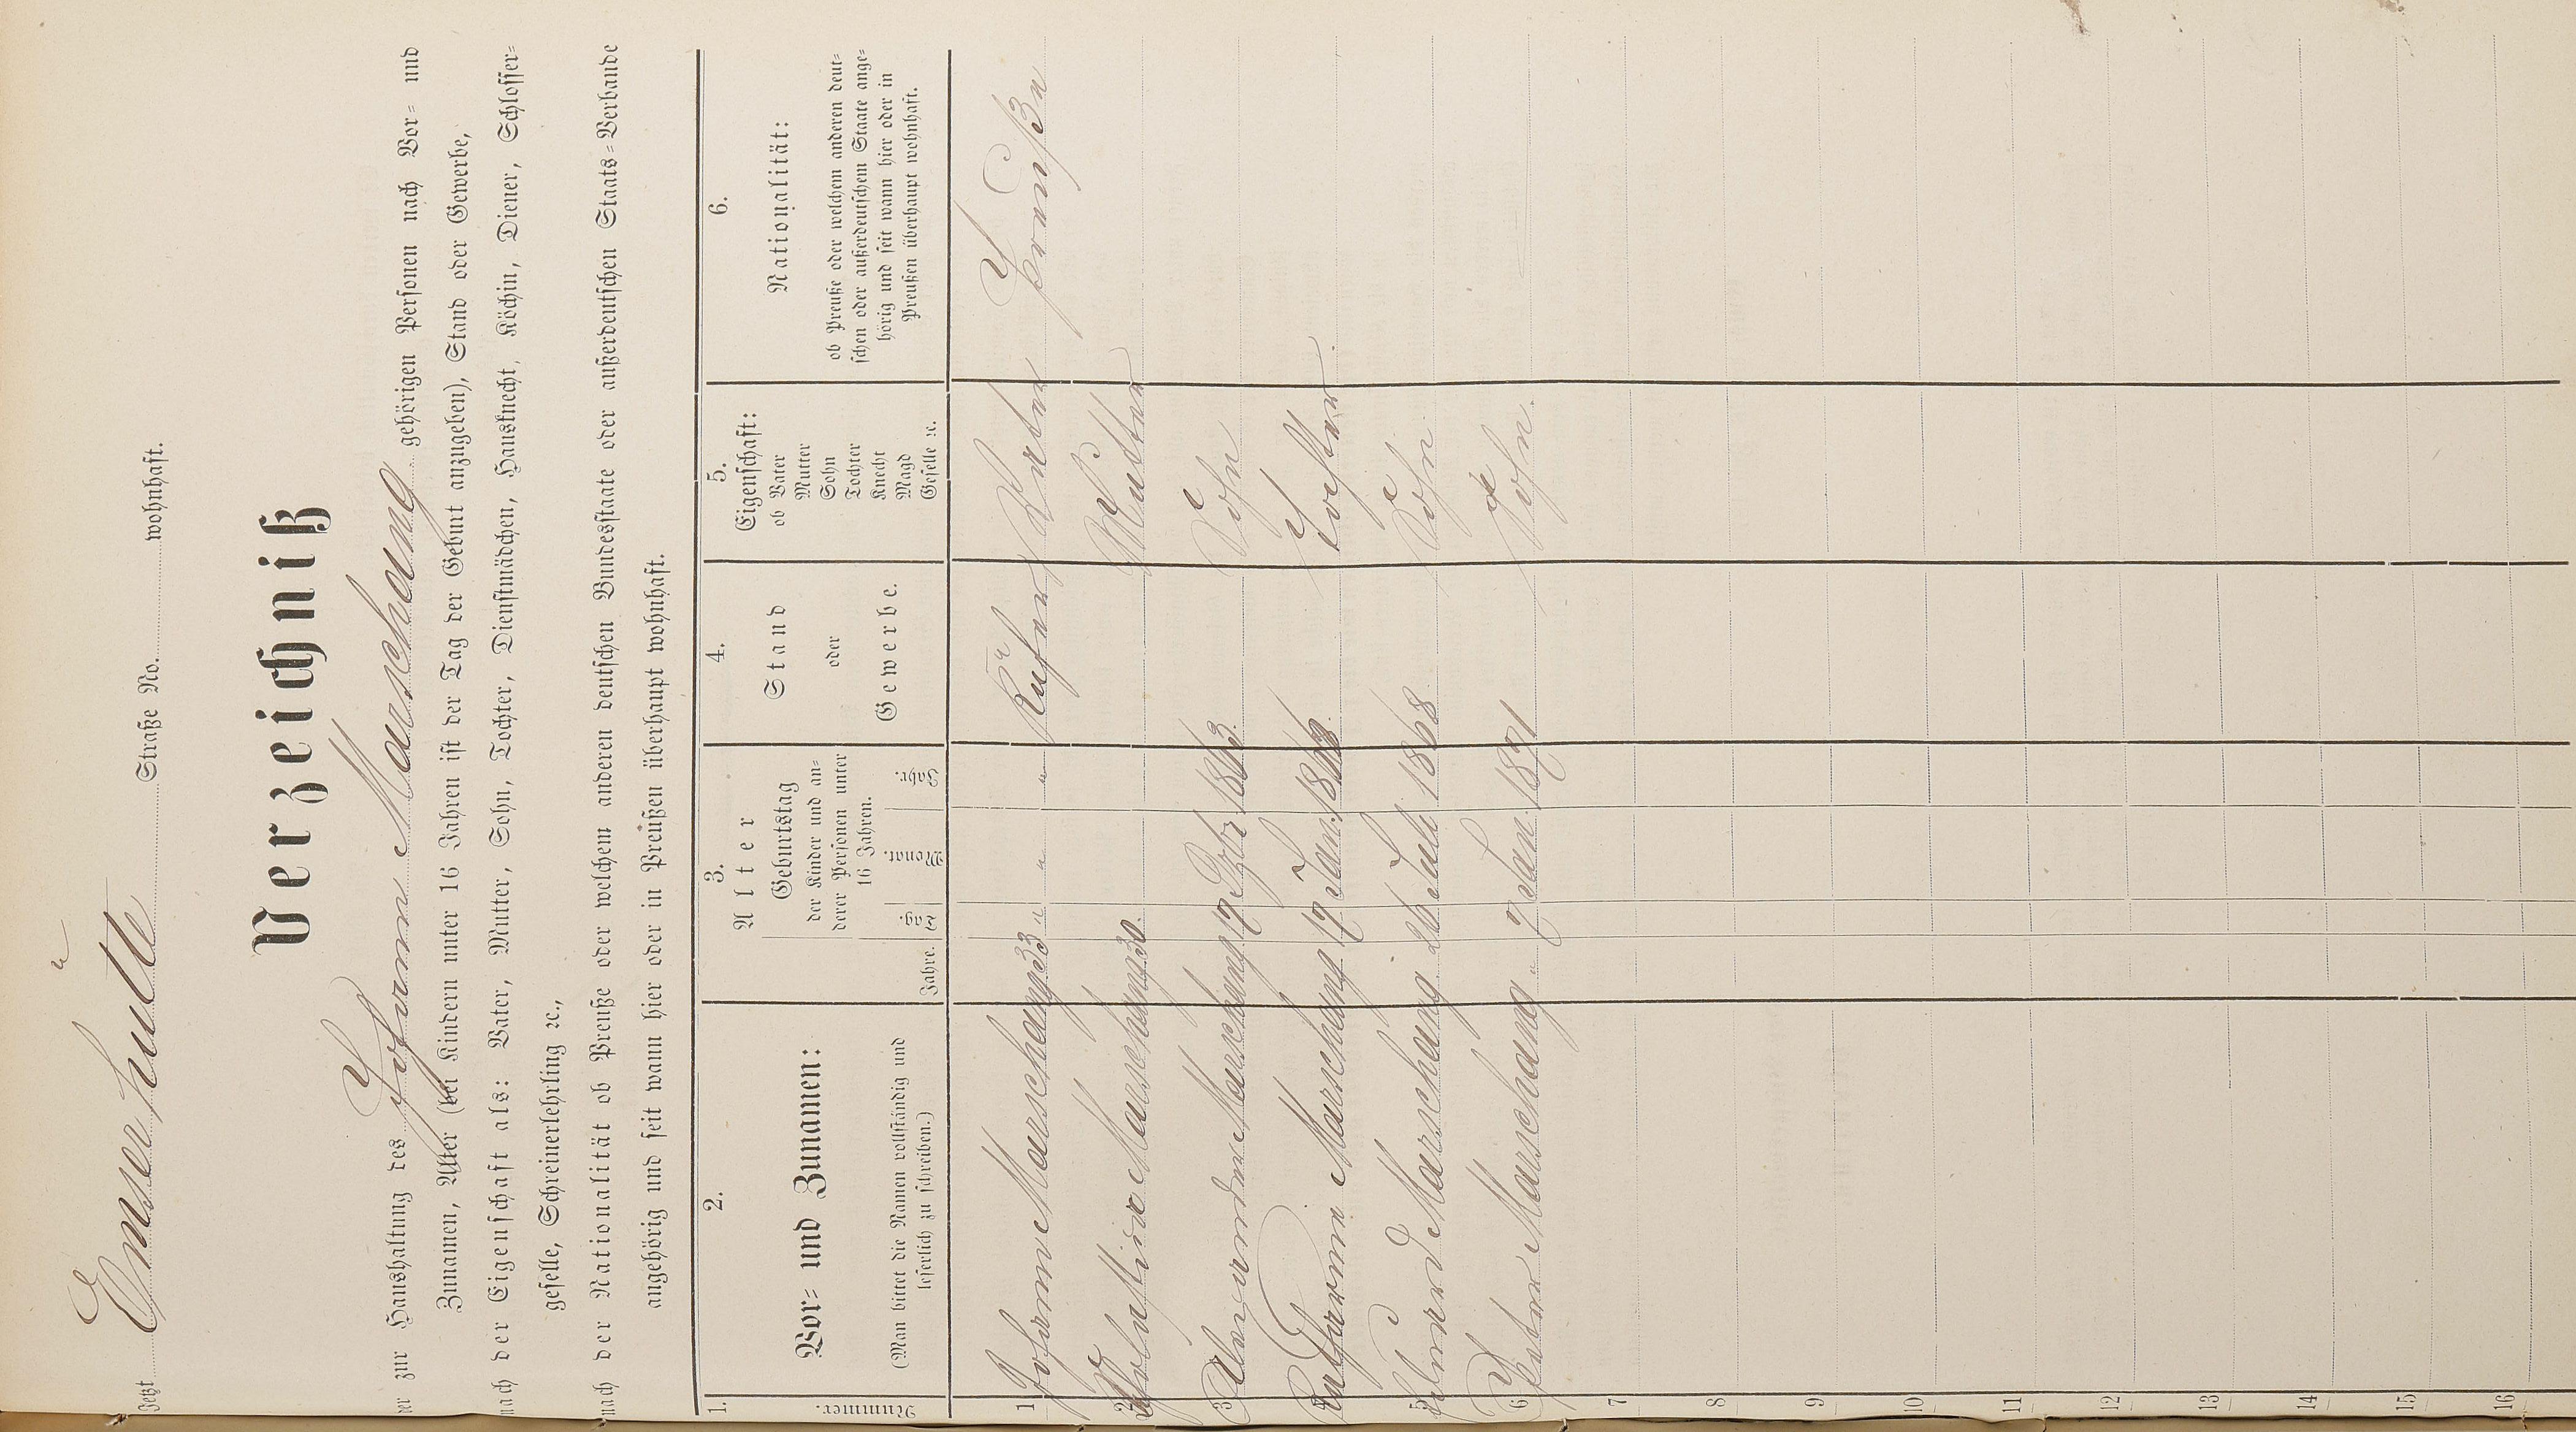 Jetzt Emserhütte Straße No. wohnhaft.
Verzeichniß
der zur Haushaltung des Johann Marschang gehörigen Personen nach Vor= und
Zunamen, Alter (bei Kindern unter 16 Jahren ist der Tag der Geburt anzugeben), Stand oder Gewerbe,
nach der Eigenschaft als: Vater, Mutter, Sohn, Tochter, Dienstmädchen, Hausknecht, Köchin, Diener, Schlosser=
geselle, Schreinerlehrling ꝛc.,
nach der Nationalität ob Preuße oder welchem anderen deutschen Bundesstaate oder außerdeutschen Staats=Verbande
angehörig und seit wann hier oder in Preußen überhaupt wohnhaft.
1.
Nummer.
2.
Vor= und Zunamen:
(Man bittet die Namen vollständig und
leserlich zu schreiben.)
3.
Alter
Jahre.
Geburtstag
der Kinder und an=
derer Personen unter
16 Jahren.
Tag. Monat. Jahr.
4.
Stand
oder
Gewerbe.
5.
Eigenschaft:
ob Vater
Mutter
Sohn
Tochter
Knecht
Magd
Geselle ꝛc.
6.
Nationalität:
ob Preuße oder welchem anderen deut=
schen oder außerdeutschem Staate ange=
hörig und seit wann hier oder in
Preußen überhaupt wohnhaft.
1 Johann Marschang 33 " " " Küfer Vater Preuße
2 Marschang 30. Mutter
3 Alexander Marschang 17 1863. Sohn
4 Katharina Marschang 17 Jan. Tochter
5 Marschang 26 Juli 1868. Sohn
6 Peter Marschang " 7 Jan. 1871 Sohn.
7
8
9
10
11
12
13
14
15
16